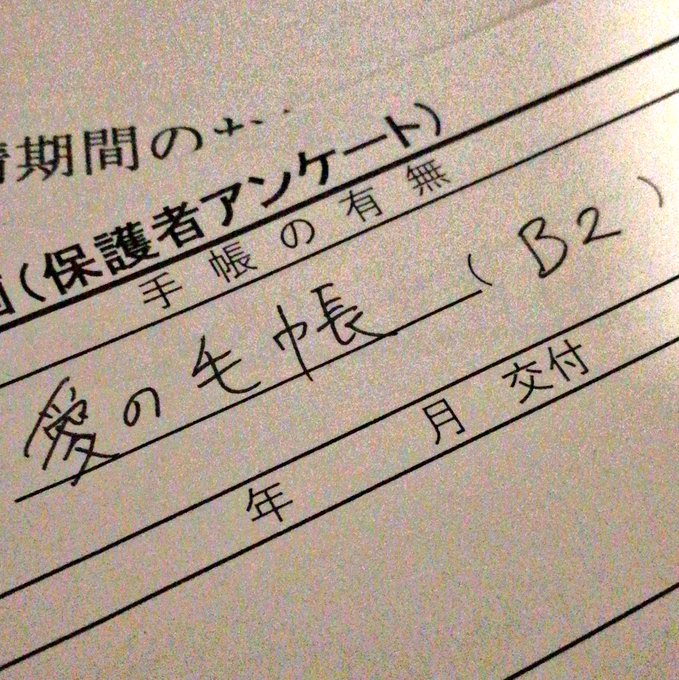 期間の
(保護者アンケート)
手帳の有無
愛の毛帳 (B2)
年 月 交付